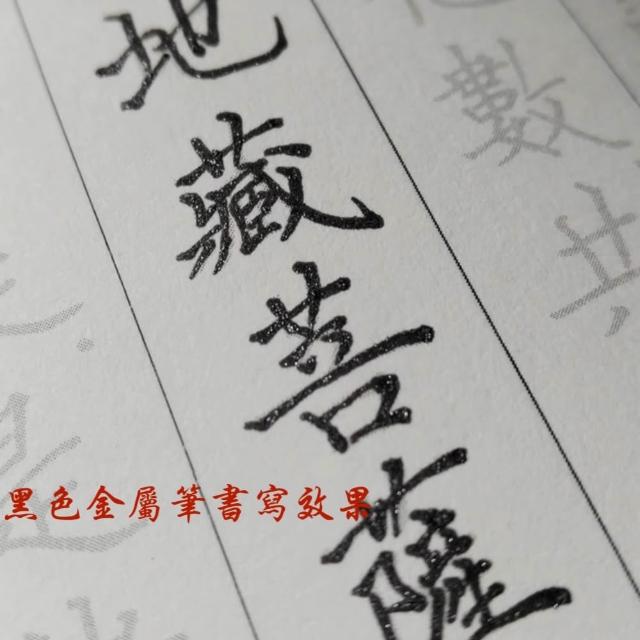 數
共
地藏菩薩
是
黑色金屬筆書寫效果